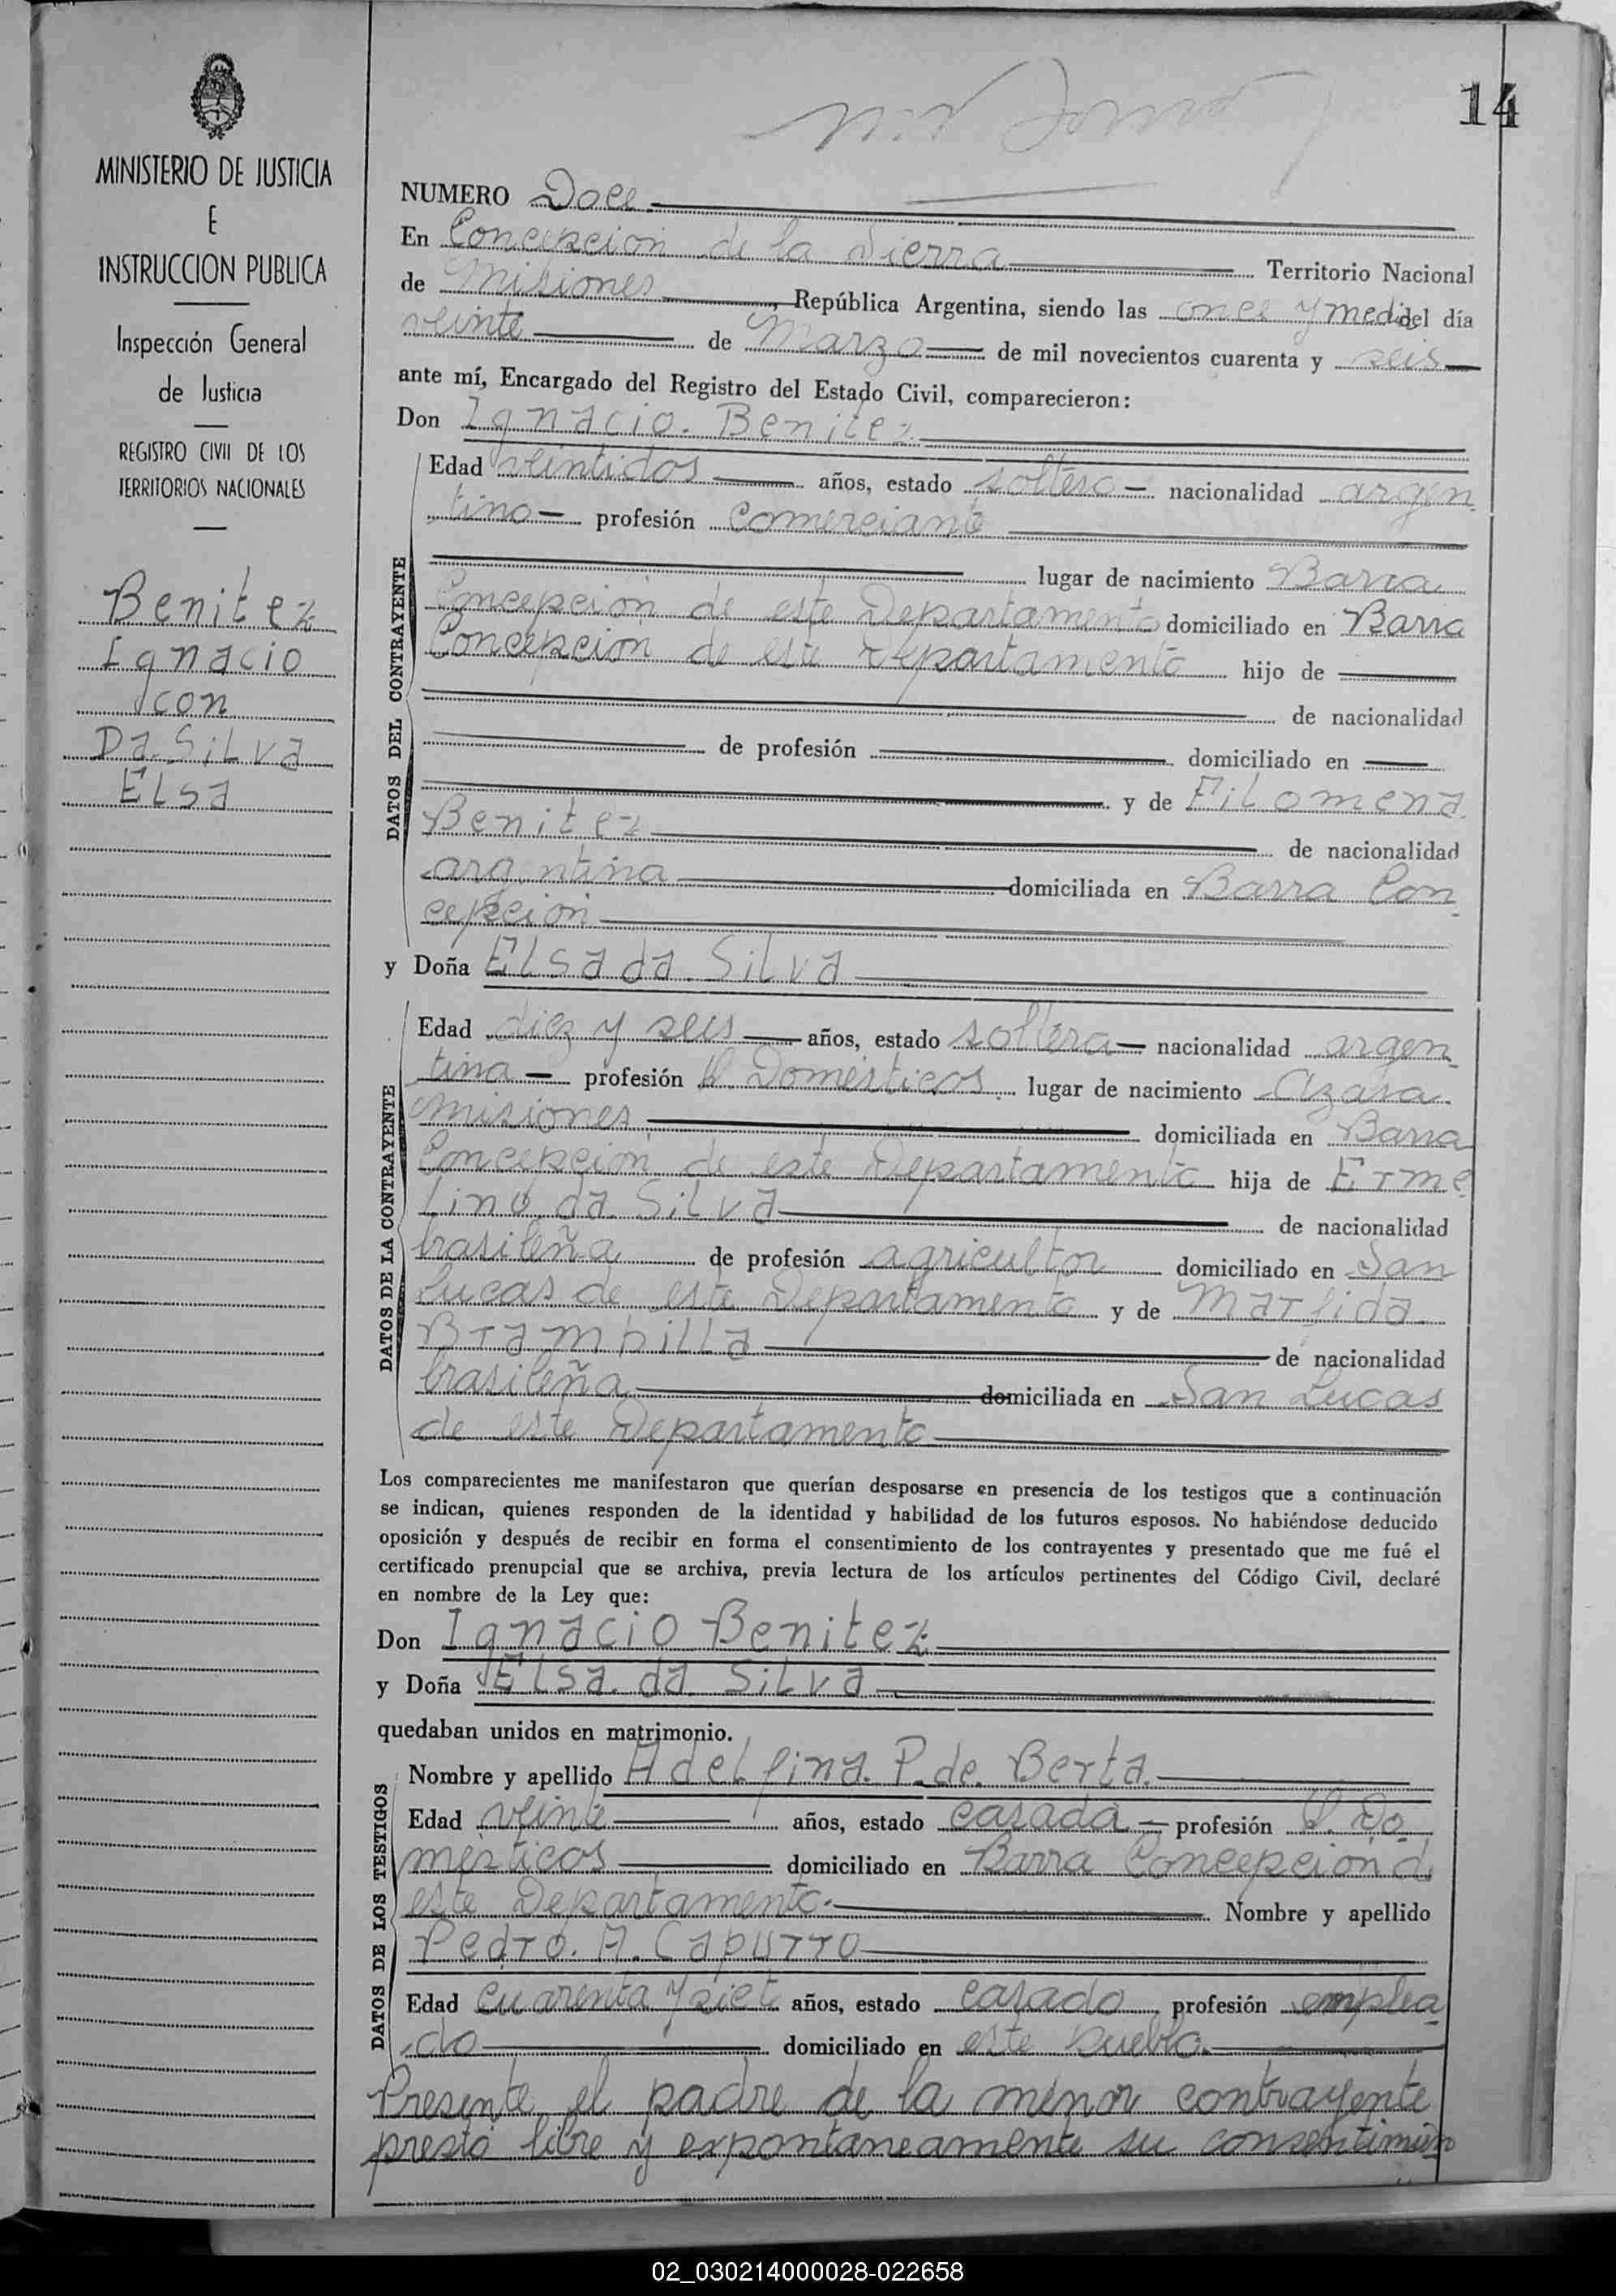 14
MINISTERIO DE JUSTICIA
E
INSTRUCCION PUBLICA
Inspección General
de Justicia
REGISTRO CIVIL DE LOS
TERRITORIOS NACIONALES
Benitez
Ignacio
con
Da Silva
Elsa
NUMERO Doce
En Concepcion de la Sierra Territorio Nacional
de Misiones, República Argentina, siendo las once y media del día
veinte de Marzo de mil novecientos cuarenta y seis
ante mí, Encargado del Registro del Estado Civil, comparecieron:
Don Ignacio Benitez
DATOS DEL CONTRAYENTE
Edad veintidos años, estado soltero nacionalidad argen
tino profesión Comerciante
lugar de nacimiento Barra
Concepcion de este Departamento domiciliado en Barra
Concepcion de este Departamento hijo de
de nacionalidad
de profesión domiciliado en
y de Filomena
Benitez de nacionalidad
argentina domiciliada en Barra Con
cepcion
y Doña Elsa da Silva
DATOS DE LA CONTRAYENTE
Edad diez y seis años, estado soltera nacionalidad argen
tina profesión Q. Domésticos lugar de nacimiento Azara
Misiones domiciliada en Barra
Concepcion de este Departamento hija de Erme
lino da Silva de nacionalidad
brasileña de profesión agricultor domiciliado en San
Lucas de este Departamento y de Marfida
Brambilla de nacionalidad
brasileña domiciliada en San Lucas
de este Departamento
Los comparecientes me manifestaron que querían desposarse en presencia de los testigos que a continuación
se indican, quienes responden de la identidad y habilidad de los futuros esposos. No habiéndose deducido
oposición y después de recibir en forma el consentimiento de los contrayentes y presentado que me fué el
certificado prenupcial que se archiva, previa lectura de los artículos pertinentes del Código Civil, declaré
en nombre de la Ley que:
Don Ignacio Benitez
y Doña Elsa da Silva
quedaban unidos en matrimonio.
DATOS DE LOS TESTIGOS
Nombre y apellido Adelfina P. de Berta
Edad veinte años, estado casada profesión Q. Do
mésticos domiciliado en Barra Concepcion d
este Departamento Nombre y apellido
Pedro A. Capurro
Edad cuarenta y siete años, estado casado profesión emplea
do domiciliado en este pueblo
Presente el padre de la menor contrayente
prestó libre y expontaneamente su consentimien
02_030214000028-022658